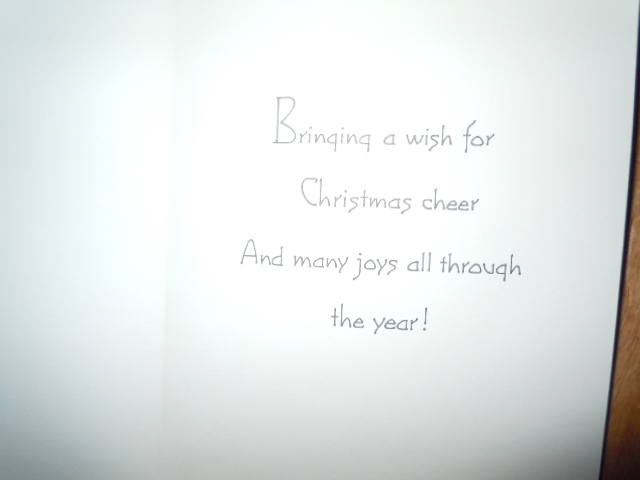 Bringing a wish for
Christmas cheer
And many joys all through
the year!